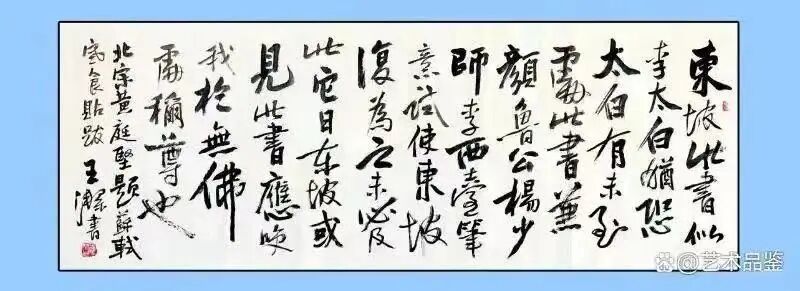 東坡此書似
李太白猶恐
太白有未到
處此書兼
顏魯公楊少
師李西臺筆
意試使東坡
復為之未必及
此它日东坡或
見此書應笑
我於無佛
處稱尊也
北宋黄庭堅題蘇軾
寒食貼跋 王 書
艺术品鉴